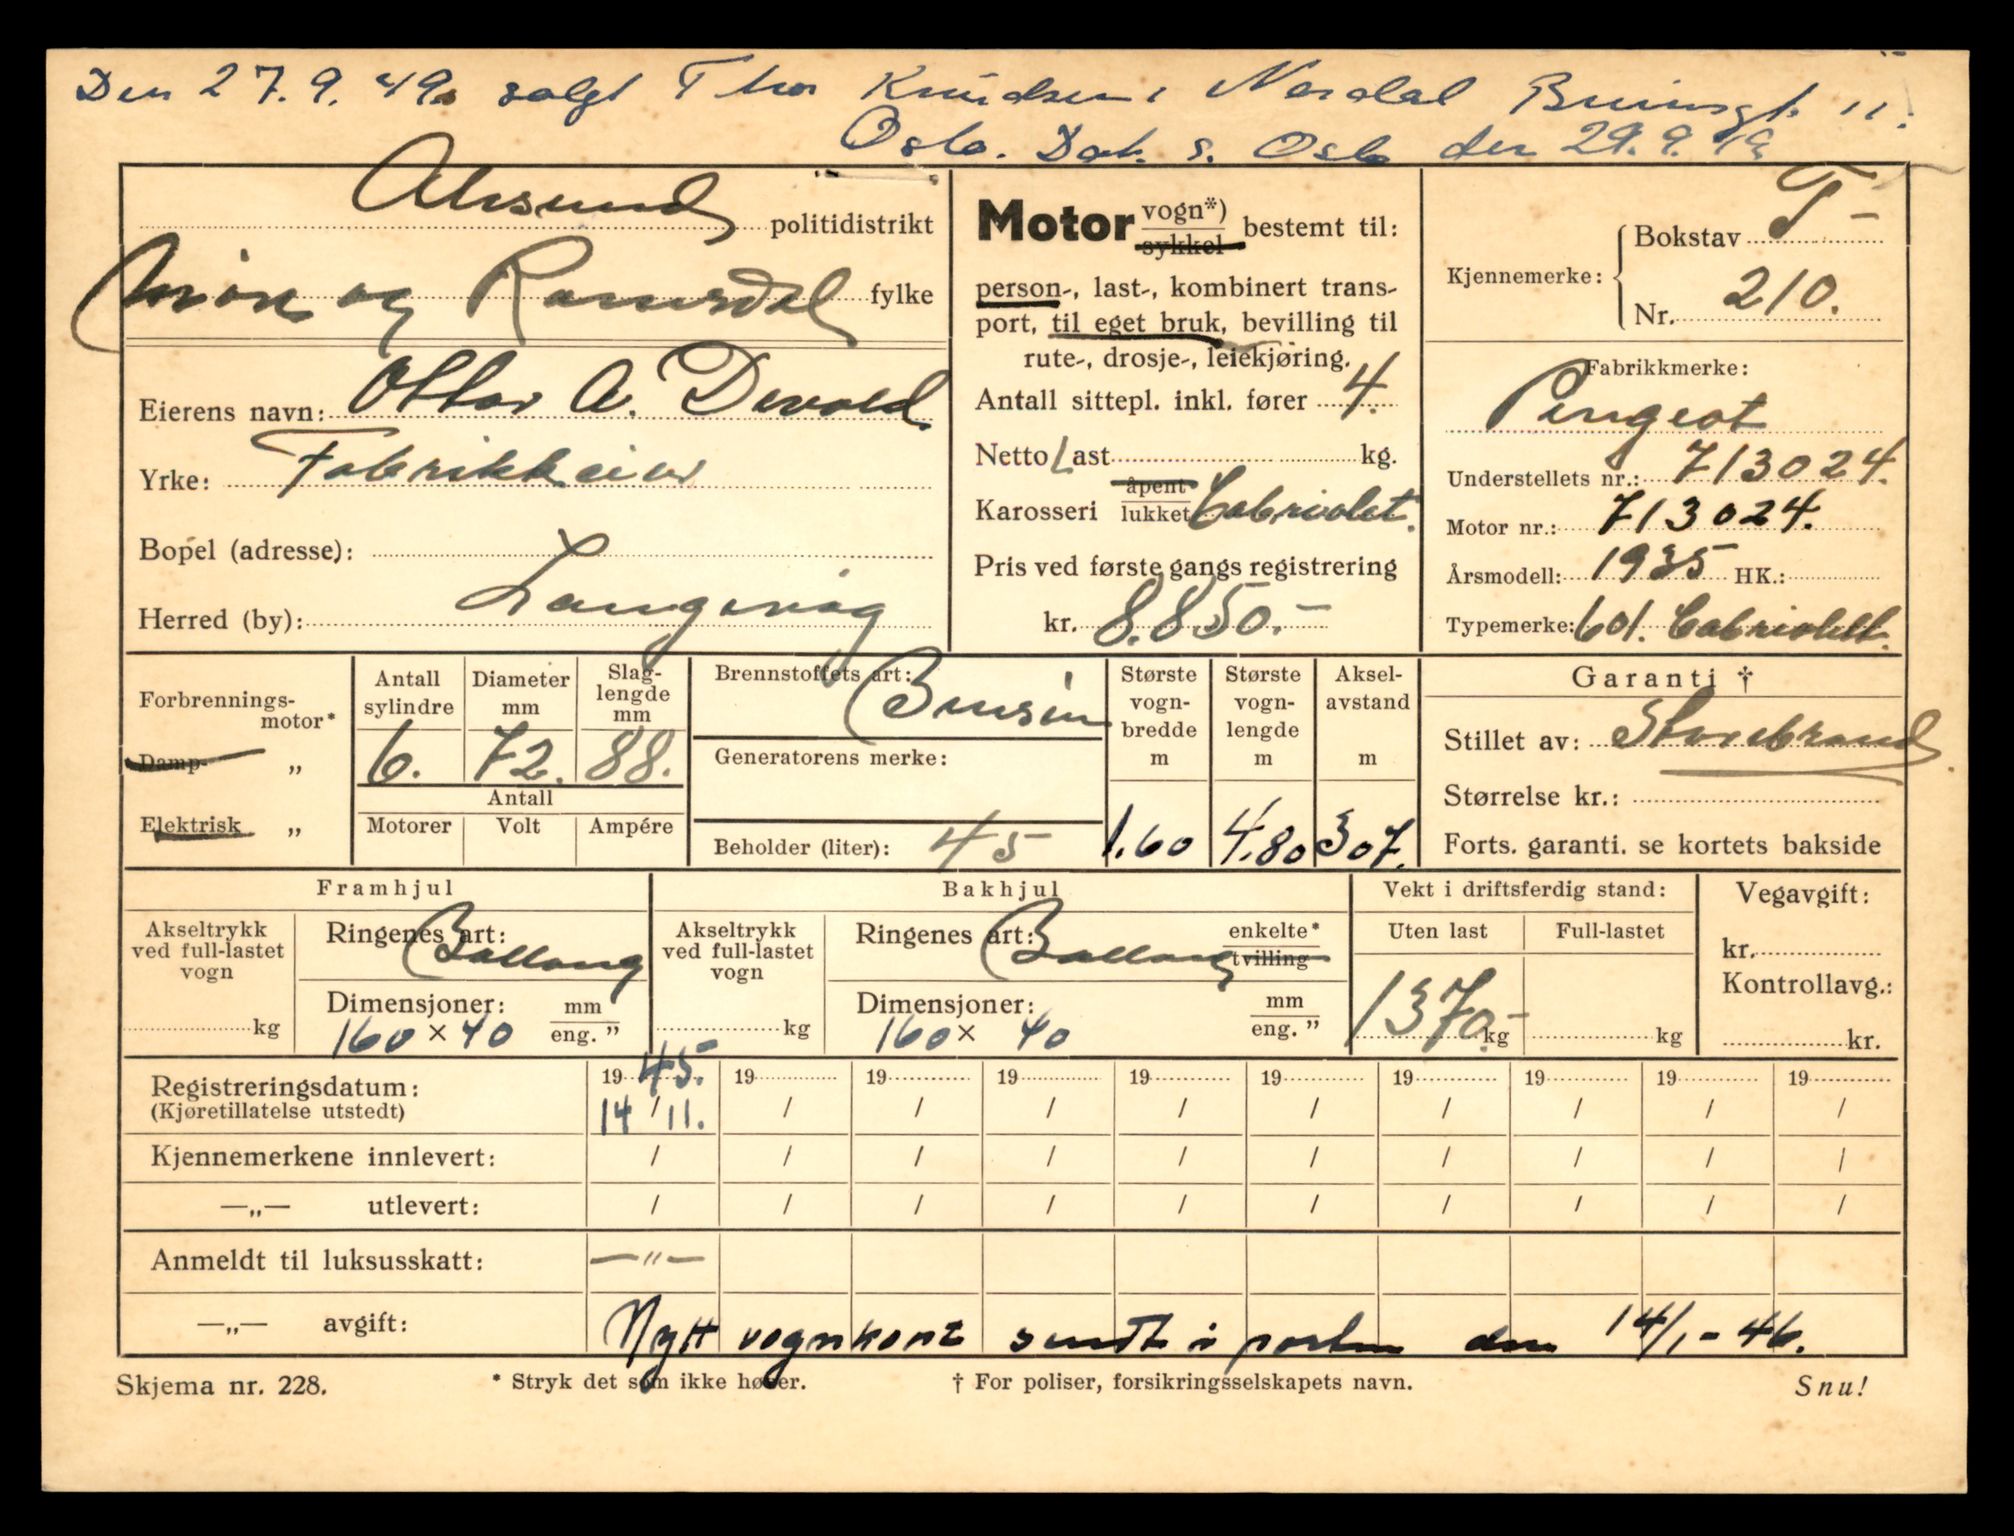 Den 27.9.49. solgt Thor Knudsen, Nordal Brunsgt. 11.
Oslo. Dok. s. Oslo den 29.9.49
Ålesund politidistrikt
Møre og Romsdal fylke
Eierens navn: Ottar A. Devold.
Yrke: Fabrikkeier
Bopel (adresse):
Herred (by): Langevåg
Motor vogn*) sykkel bestemt til:
person-, last-, kombinert trans-
port, til eget bruk, bevilling til
rute-, drosje-, leiekjøring.
Antall sittepl. inkl. fører 4.
Netto Last kg.
Karosseri åpent lukket Cabriolet.
Pris ved første gangs registrering
kr. 8.850.-
Kjennemerke: Bokstav T-
Nr. 210.
Fabrikkmerke:
Peugeot
Understellets nr.: 713024.
Motor nr.: 713024.
Årsmodell: 1935 HK.:
Typemerke: 601. Cabriolett.
Forbrennings-
motor*
Damp- „
Elektrisk „
Antall sylindre 6.
Diameter mm 72.
Slag-
lengde mm 88.
Antall
Motorer Volt Ampére
Brennstoffets art: Bensin
Generatorens merke:
Beholder (liter): 45
Største vogn-
bredde m 1.60
Største vogn-
lengde m 4.80
Aksel-
avstand m 307.
Garanti †
Stillet av: Storebrand
Størrelse kr.:
Forts. garanti. se kortets bakside
Framhjul
Akseltrykk
ved full-lastet
vogn
kg
Ringenes art: Ballong
Dimensjoner: mm
160 × 40 eng. ”
Bakhjul
Akseltrykk
ved full-lastet
vogn
kg
Ringenes art: Ballong enkelte* tvilling
Dimensjoner: mm
160 × 40 eng. ”
Vekt i driftsferdig stand:
Uten last Full-lastet
1370.- kg kg
Vegavgift:
kr.
Kontrollavg.:
kr.
Registreringsdatum: 1945. 19 19 19 19 19 19 19 19 19
(Kjøretillatelse utstedt) 14 / 11. / / / / / / / / /
Kjennemerkene innlevert: / / / / / / / / / /
—„— utlevert: / / / / / / / / / /
Anmeldt til luksusskatt: —"—
—„— avgift: Nytt vognkort sendt i posten den 14/1-46.
Skjema nr. 228. * Stryk det som ikke høver. † For poliser, forsikringsselskapets navn. Snu!